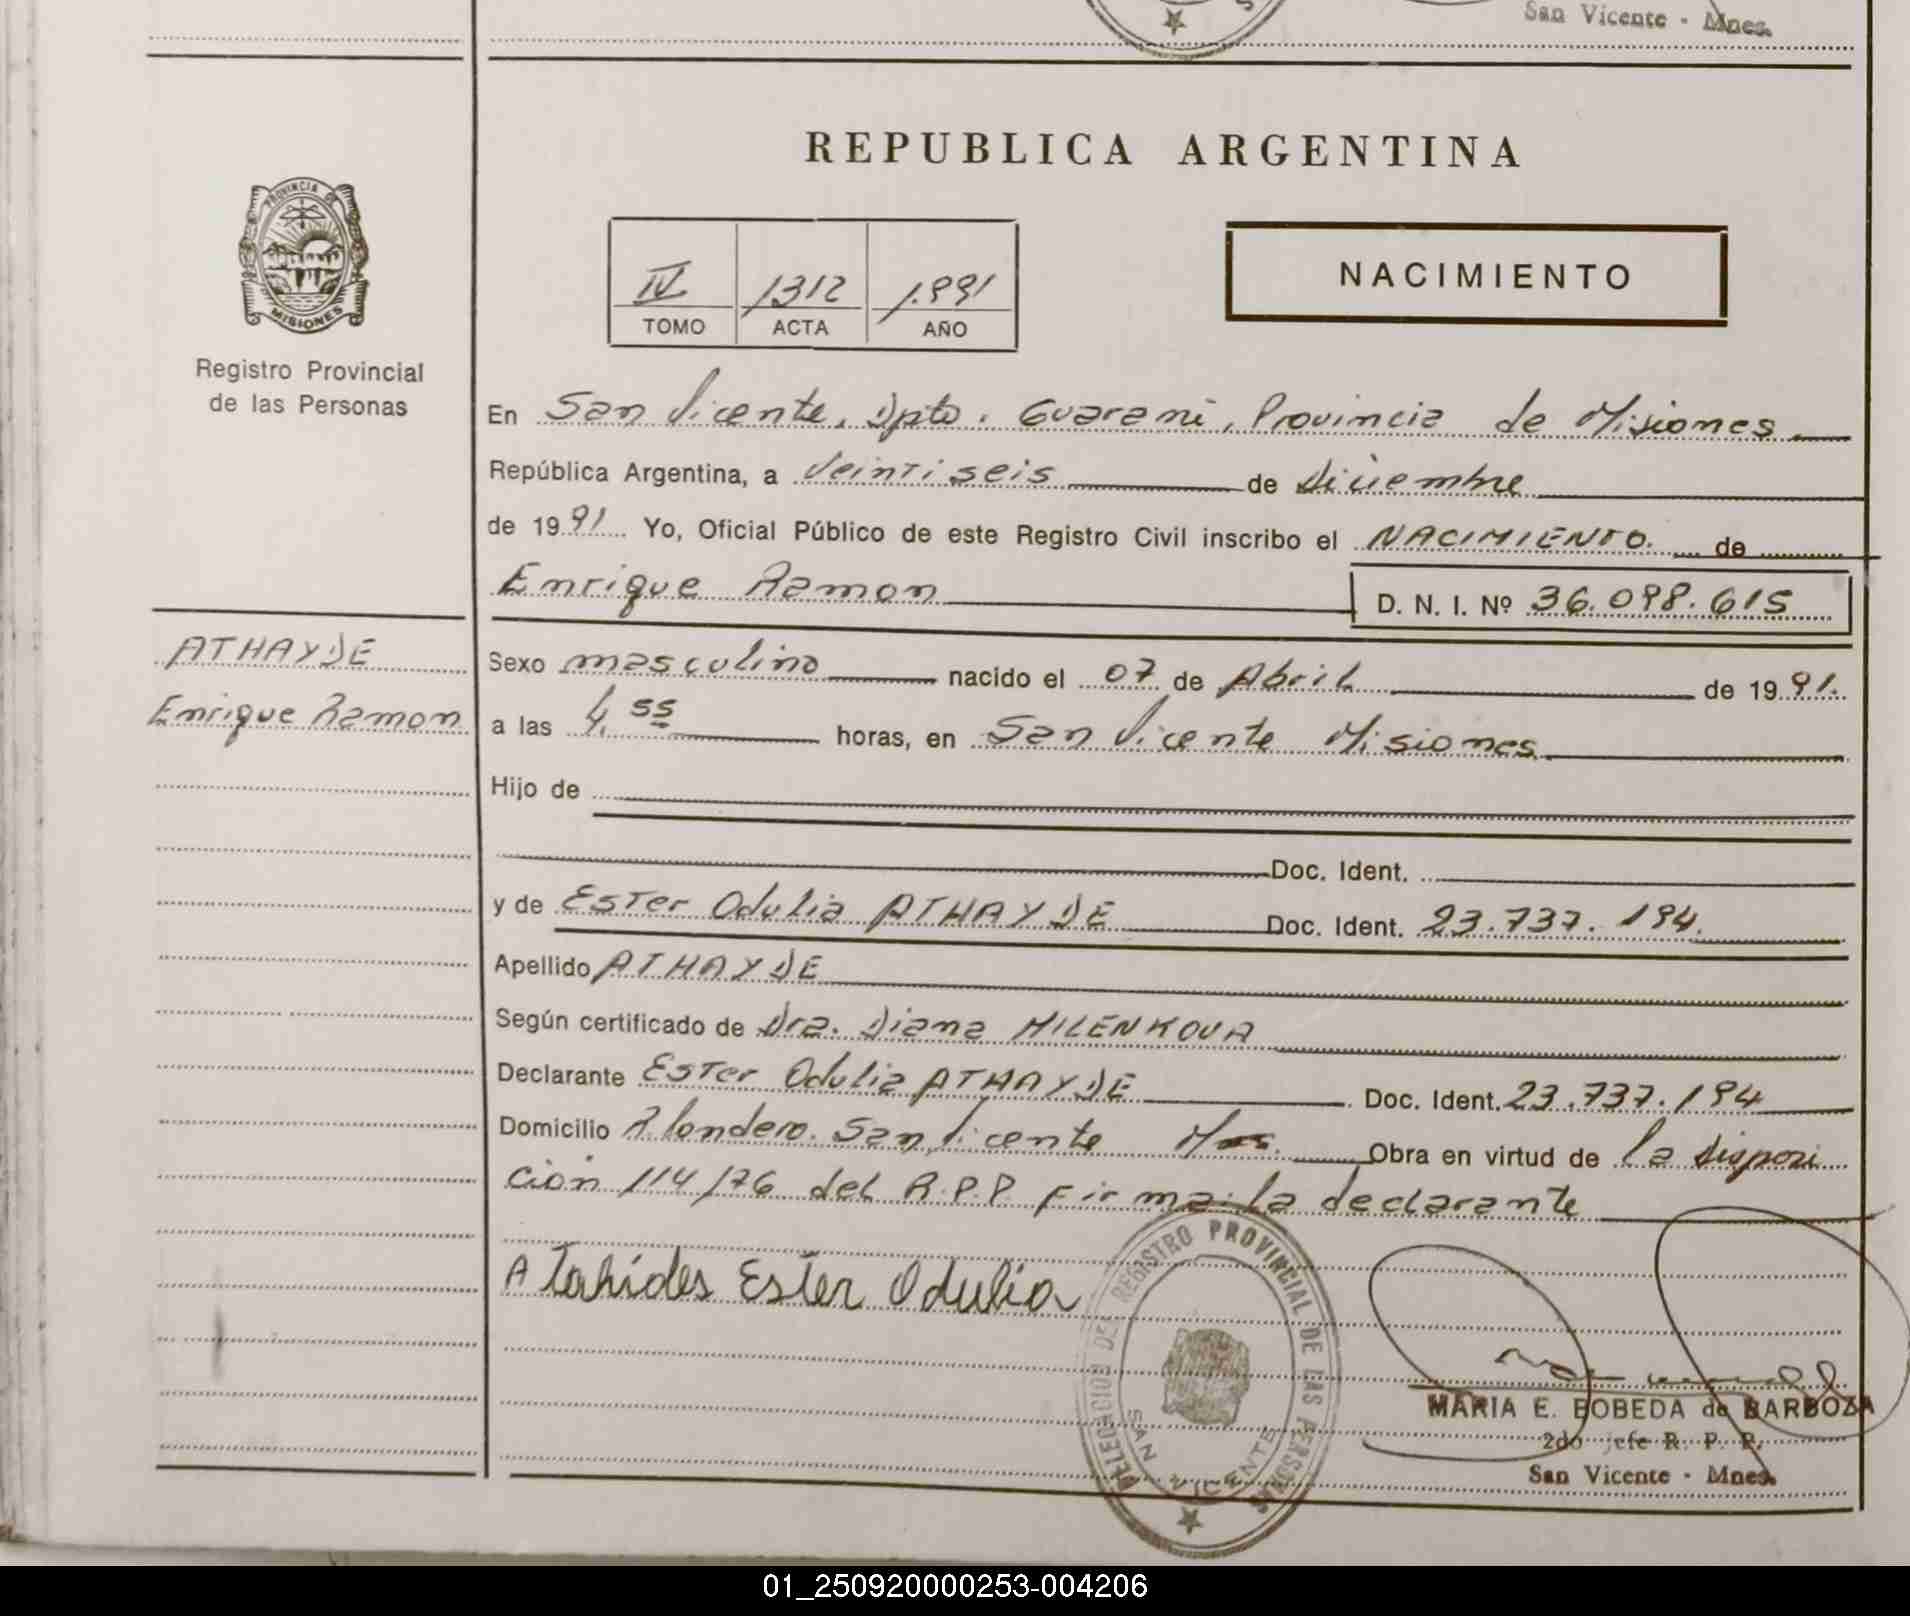 San Vicente - Mnes.
REPUBLICA ARGENTINA
PROVINCIA DE
MISIONES
Registro Provincial
de las Personas
IV 1312 1.991
TOMO ACTA AÑO
NACIMIENTO
En San Vicente, Dpto. Guarani, Provincia de Misiones
República Argentina, a Veintiseis de Diciembre
de 1991 Yo, Oficial Público de este Registro Civil inscribo el NACIMIENTO. de
Enrique Ramon D. N. I. Nº 36.098.615
ATHAYDE
Enrique Ramon
Sexo masculino nacido el 07 de Abril de 1991.
a las 4,55 horas, en San Vicente Misiones
Hijo de
Doc. Ident.
y de Ester Odulia ATHAYDE Doc. Ident. 23.737.194
Apellido ATHAYDE
Según certificado de Dra. Diana MILENKOVA
Declarante Ester Odulia ATHAYDE Doc. Ident. 23.737.194
Domicilio A. londero. San Vicente Mnes. Obra en virtud de la disposi
ción 114/76 del R.P.P. Firma: la declarante
Atahides Ester Odulia
DELEGACION DEL REGISTRO PROVINCIAL DE LAS PERSONAS
SAN VICENTE
MARIA E. BOBEDA de BARBOZA
2do jefe R. P. P.
San Vicente - Mnes.
01_250920000253-004206